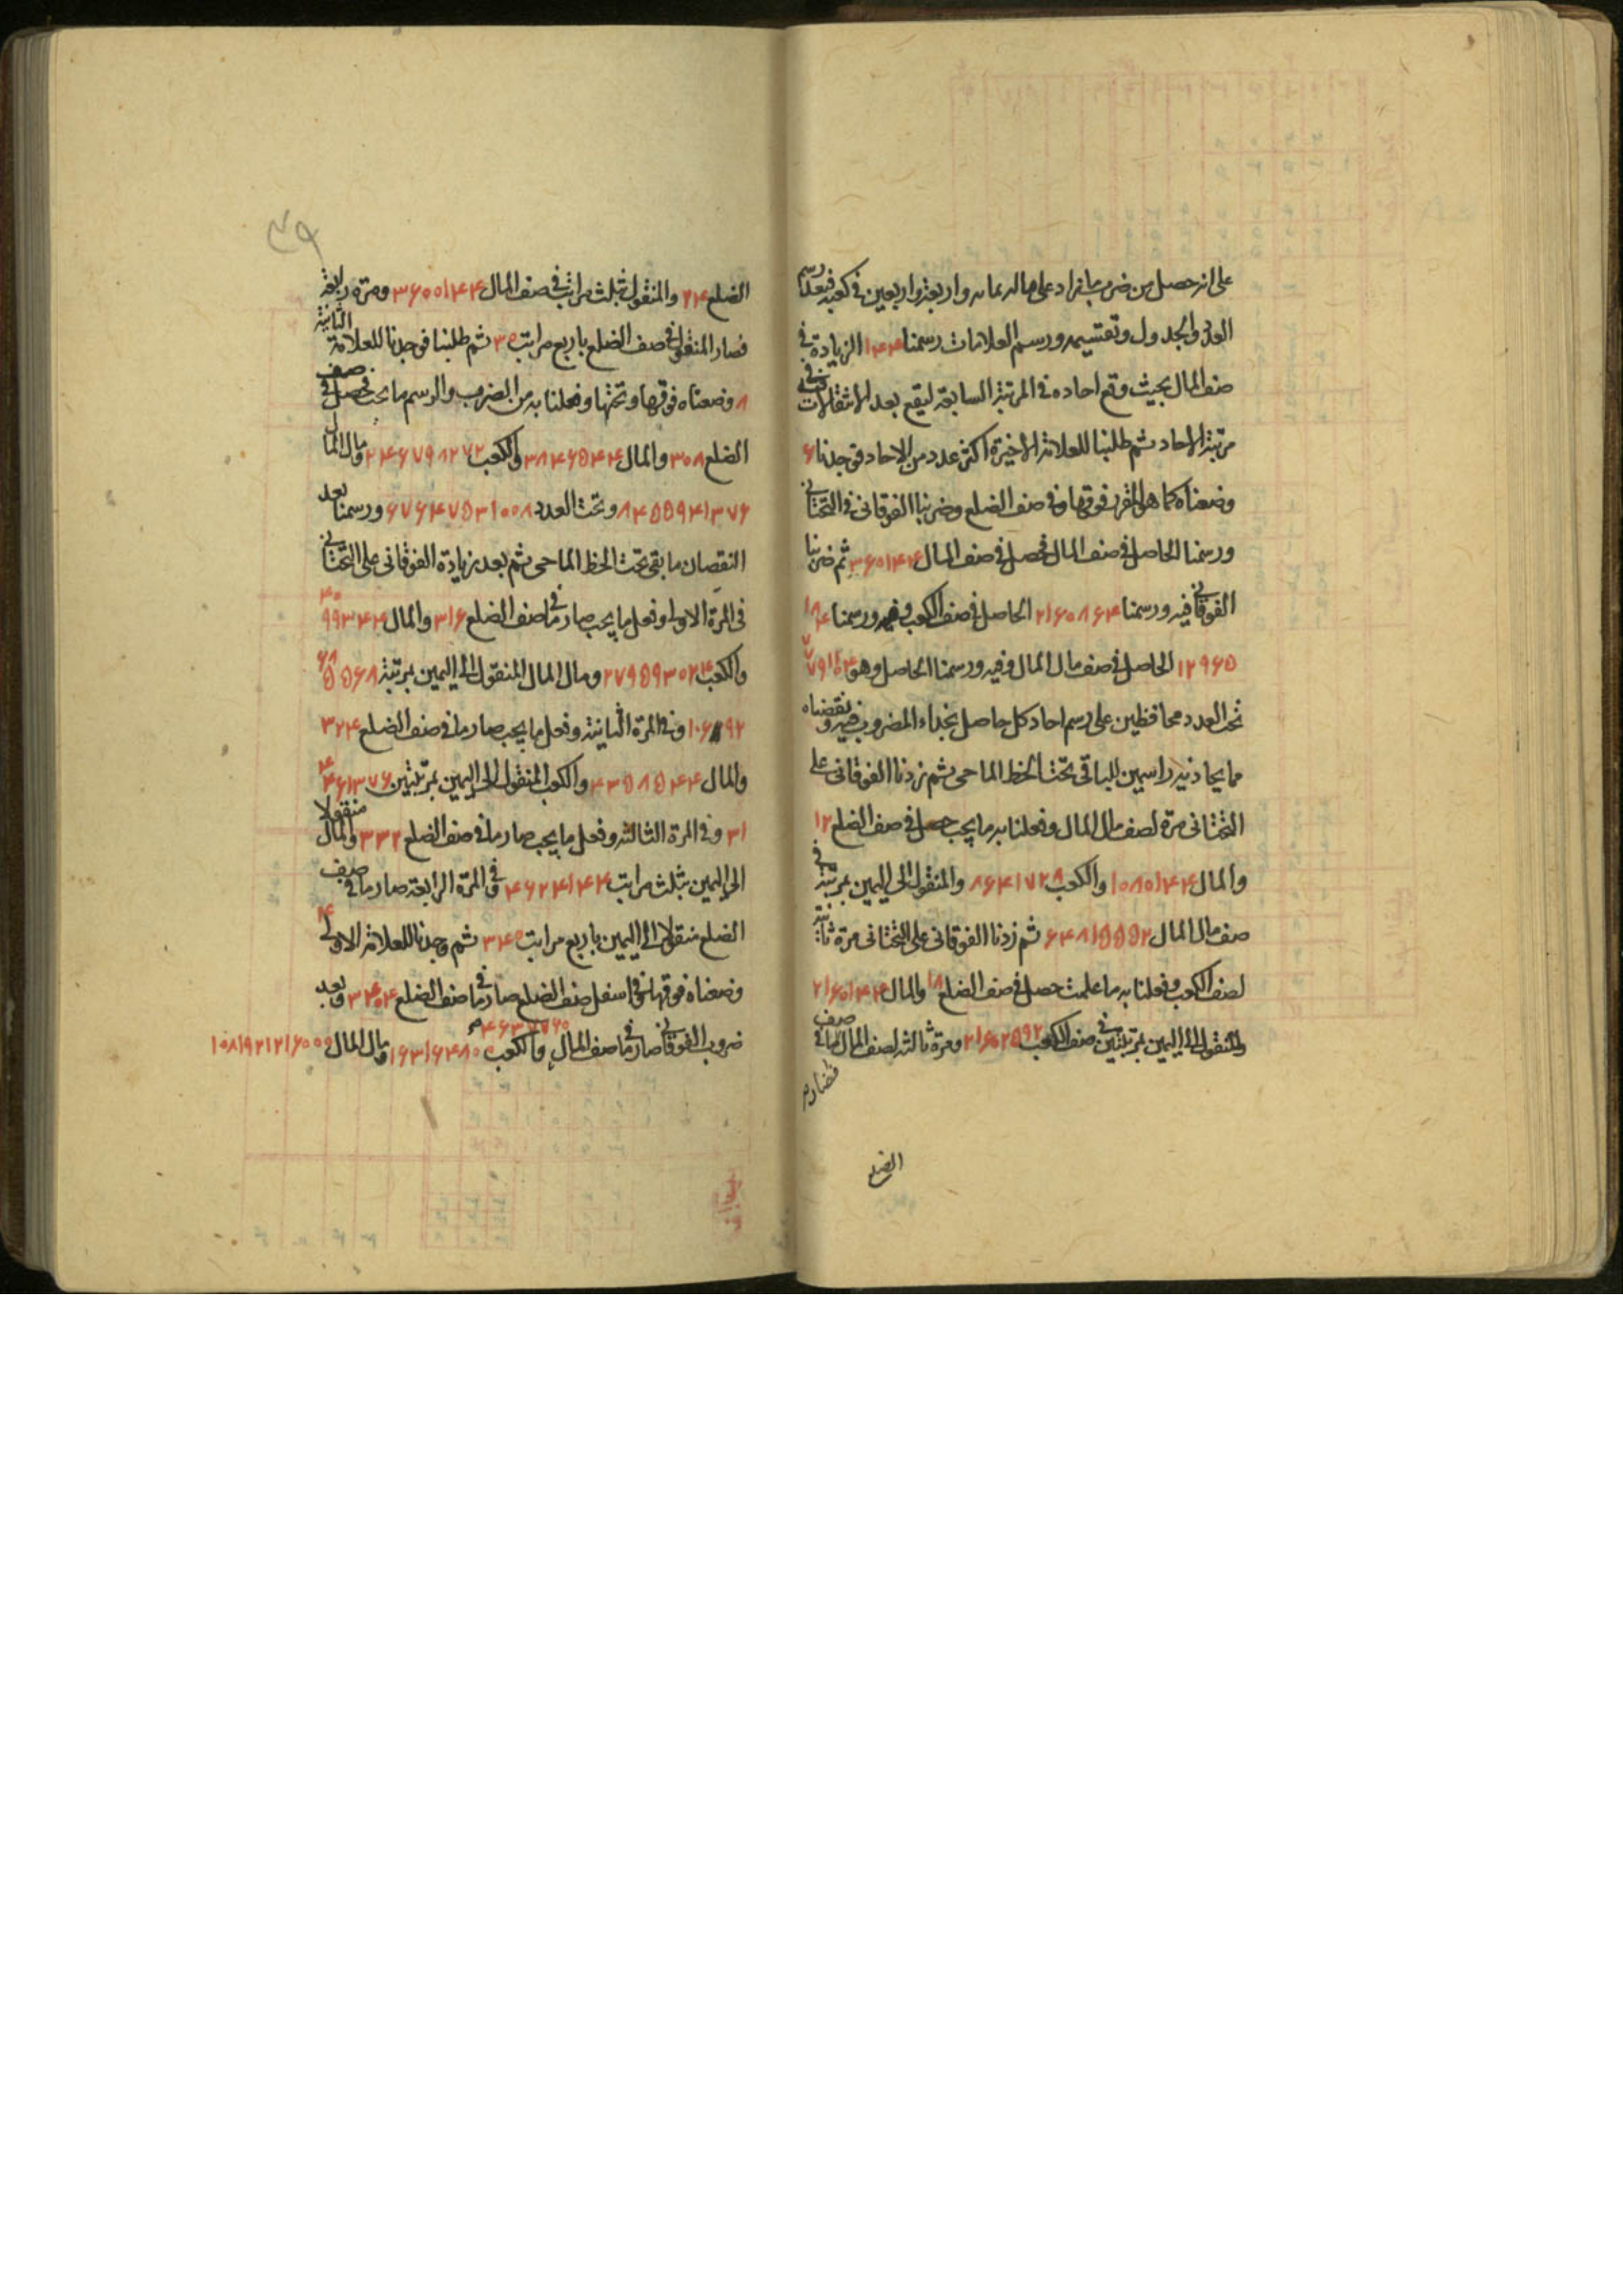 على انه حصل من ضرب ما زاد على ماله بمائه واربعة واربعين فى كعبه فبعد رسم
العدد والجدول وتقسيمه ورسم العلامات رسمنا ۱۴۴ الزيادة فى
صف المال بحيث وقع احاده فى المرتبة السابقة ليقع بعد الانتقالات فى
مرتبة الاحاد ثم طلبنا للعلامة الاخيرة اكثر عدد من الاحاد فوجدنا ۶
وضعناه كما هو المقرر فوقها وفى صف الضلع وضربنا الفوقانى فى التحتانى
ورسمنا الحاصل فى صف المال فحصل فى صف المال ۳۶۰۱۴۴ ثم ضربنا
الفوقانى فيه ورسمنا ۲۱۶۰۸۶۴ الحاصل فى صف الكعب وفيه ورسمنا ۱۸۴
۱۲۹۶۵ الحاصل فى صف مال المال وفيه ورسمنا الحاصل وهو
تحت العدد محافظين على رسم احاد كل حاصل بحذاء المضروب فيه ونقصناه
مما يحاذيه راسمين للباقى تحت الخط الماحى ثم زدنا الفوقانى على
التحتانى مرة لصف مال المال وفعلنا به ما يجب حصل فى صف الضلع ۱۲
والمال ۱۰۸۰۱۴۴ والكعب ۸۶۴۱۷۲۸ والمنقول الى اليمين بمرتبة فى
صف مال المال ۶۴۸۱۵۵۵۲ ثم زدنا الفوقانى على التحتانى مرة ثانية
لصف الكعب وفعلنا به ما علمت حصل فى صف الضلع ۱۸ والمال ۲۱۶۰۱۴۴
والمنقول الى اليمين بمرتبتين فى صف الكعب ۲۱۶۰۲۵۹۲ ومرة ثالثة لصف المال فصار ما فى صف
الضلع
۳۹
الضلع ۲۴ والمنقول بثلث مراتب فى صف المال ۳۶۰۰۱۴۴ ومرة رابعة
فصار المنقول فى صف الضلع باربع مراتب ۳۰ ثم طلبنا فوجدنا للعلامة الثانية
۸ وضعناه فوقها وتحتها وفعلنا به من الضرب والرسم ما يجب فحصل فى صف
الضلع ۳۰۸ والمال ۳۸۴۶۵۴۴ والكعب ۲۴۶۷۹۸۲۷۲ ومال المال
۸۴۵۵۹۴۱۳۷۶ وتحت العدد ۶۷۶۴۷۵۳۱۰۰۸ ورسمنا بعد
النقصان ما بقى تحت الخط الماحى ثم بعد زيادة الفوقانى على التحتانى
فى المرة الاولى وفعل ما يجب صار ما فى صف الضلع ۳۱۶ والمال ۴۰۹۹۳۴۴
والكعب ۲۷۹۵۹۳۰۲۴ ومال المال المنقول الى اليمين بمرتبة
وفى المرة الثانية وفعل ما يجب صار ما فى صف الضلع ۳۲۴
والمال ۴۳۵۸۵۴۴ والكعب المنقول الى اليمين بمرتبتين
۳۱ وفى المرة الثالثة وفعل ما يجب صار ما فى صف الضلع ۳۳۲ والمال منقولا
الى اليمين بثلث مراتب ۴۶۲۴۱۴۴ وفى المرة الرابعة صار ما فى صف
الضلع منقولا الى اليمين باربع مراتب ۳۴۰ ثم وجدنا للعلامة الاولى ۴
وضعناه فوقها وفى اسفل صف الضلع صار ما فى صف الضلع ۳۴۰۴ وبعد
ضرب الفوقانى صار ما فى صف المال ۴۶۳۷۷۶۰ والكعب ومال المال